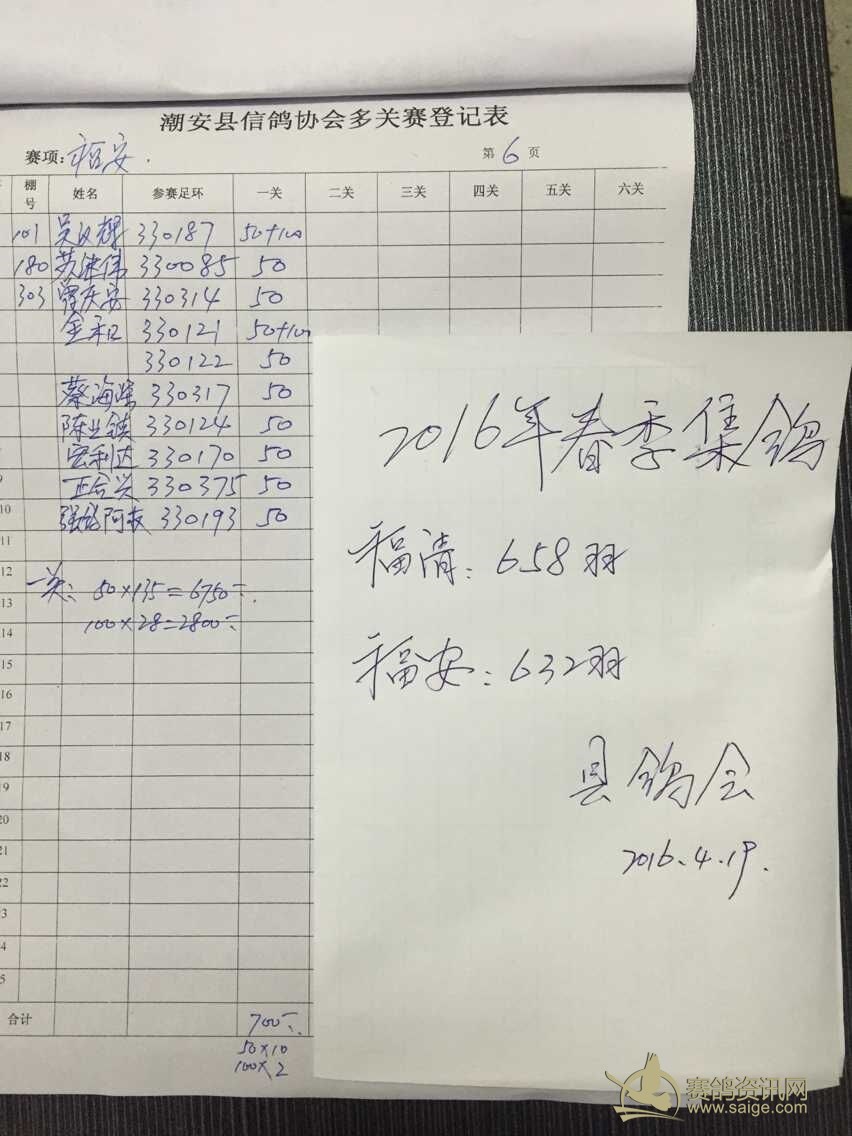 潮安县信鸽协会多关赛登记表
赛项: 福安. 第 6 页
棚号 姓名 参赛足环 一关 二关 三关 四关 五关 六关
101 吴汉辉 330187 50+100
180 苏 伟 330085 50
303 曾庆安 330314 50
金和 330121 50+100
330122 50
蔡海 330317 50
陈业镇 330124 50
宏利达 330170 50
正合兴 330375 50
10 阿 330193 50
11
12 一关: 50×135=6750
13
100×28=2800
14
15
16
17
18
19
20
21
22
23
合计 700
50×10
100×2
2016年春季集鸽
福清: 658羽
福安: 632羽
县鸽会
2016.4.19.
赛鸽资讯网
www.saige.com